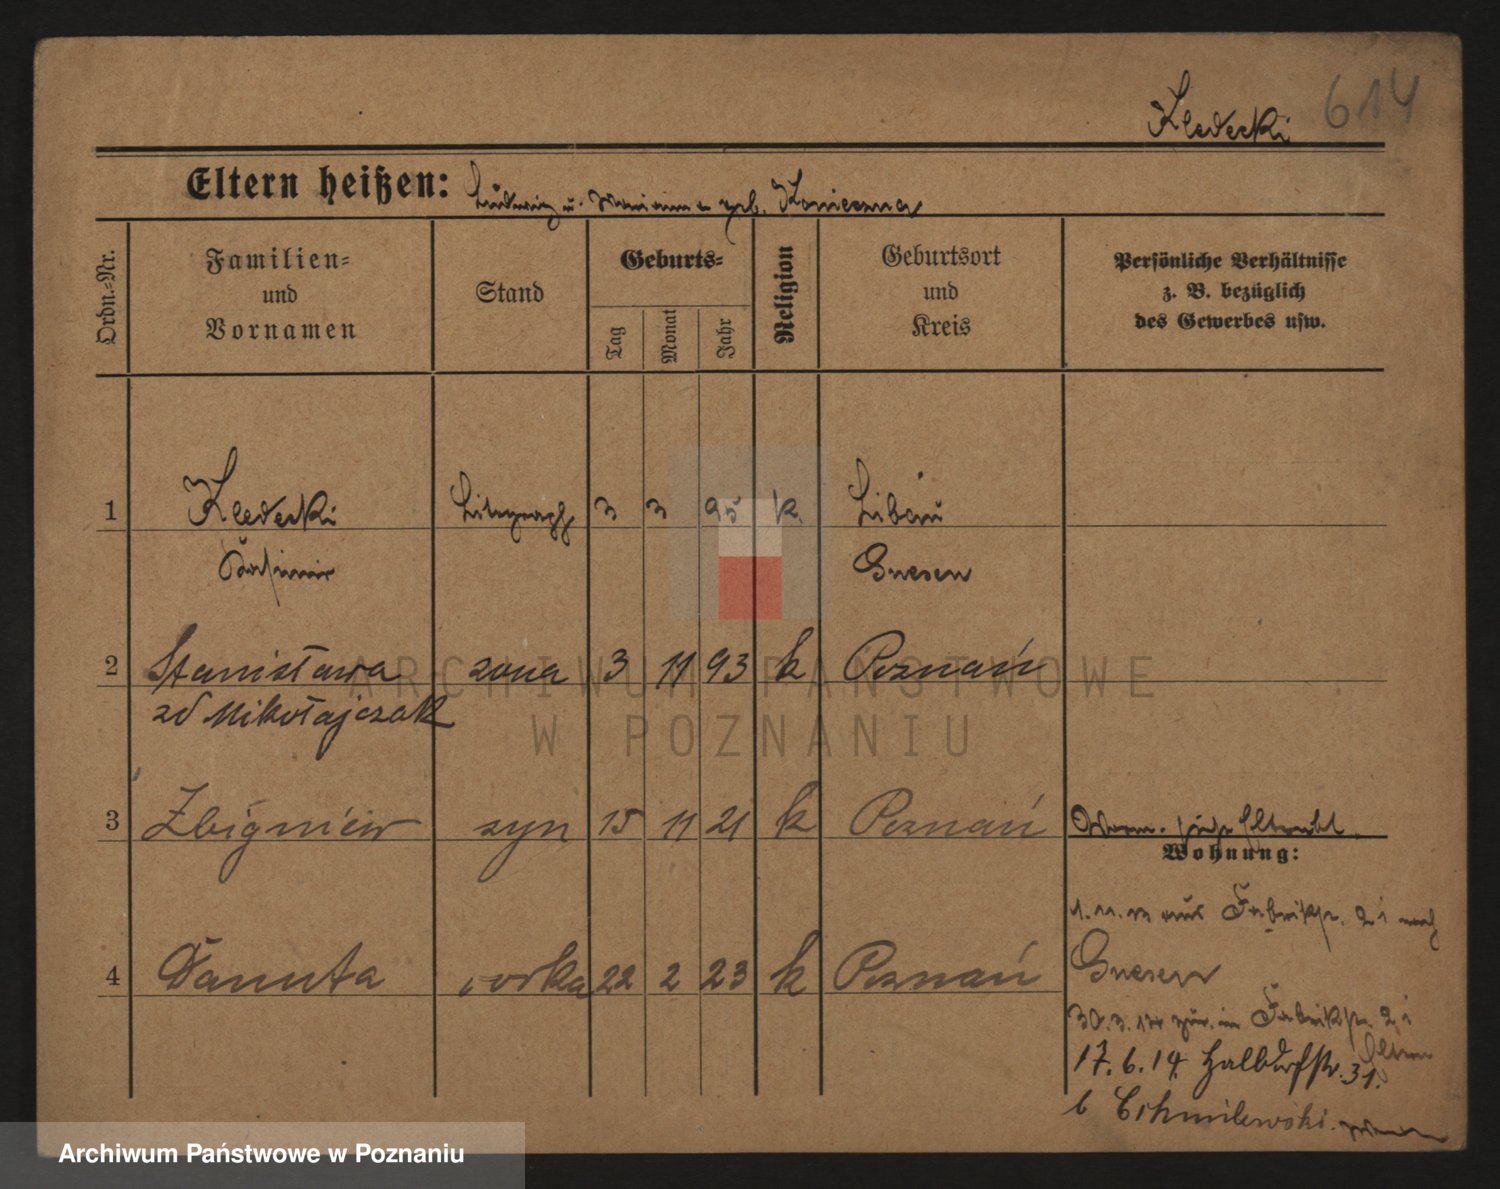 Kledecki 614
Eltern heißen: Ludwig u. Marianna geb. Konieczna
Ordn.-Nr.
Familien-
und
Vornamen
Stand
Geburts-
Tag
Monat
Jahr
Religion
Geburtsort
und
Kreis
Persönliche Verhältnisse
z. B. bezüglich
des Gewerbes usw.
1 Kledecki Litograph 3 3 95 k. Libau
Kasimir Gnesen
2 Stanisława żona 3 11 93 k Poznań
zd Mikołajczak
3 Zbigniew syn 15 11 21 k Poznań
Wohnung:
4 Danuta córka 22 2 23 k Poznań
1. 11. aus Fabrikstr. 21 nach
Gnesen
30. 3. zur. in Fabrikstr. 21
Eltern
17. 6. 14. Halbdorfstr. 31.
b Chmilewski.
ARCHIWUM PAŃSTWOWE
W POZNANIU
Archiwum Państwowe w Poznaniu